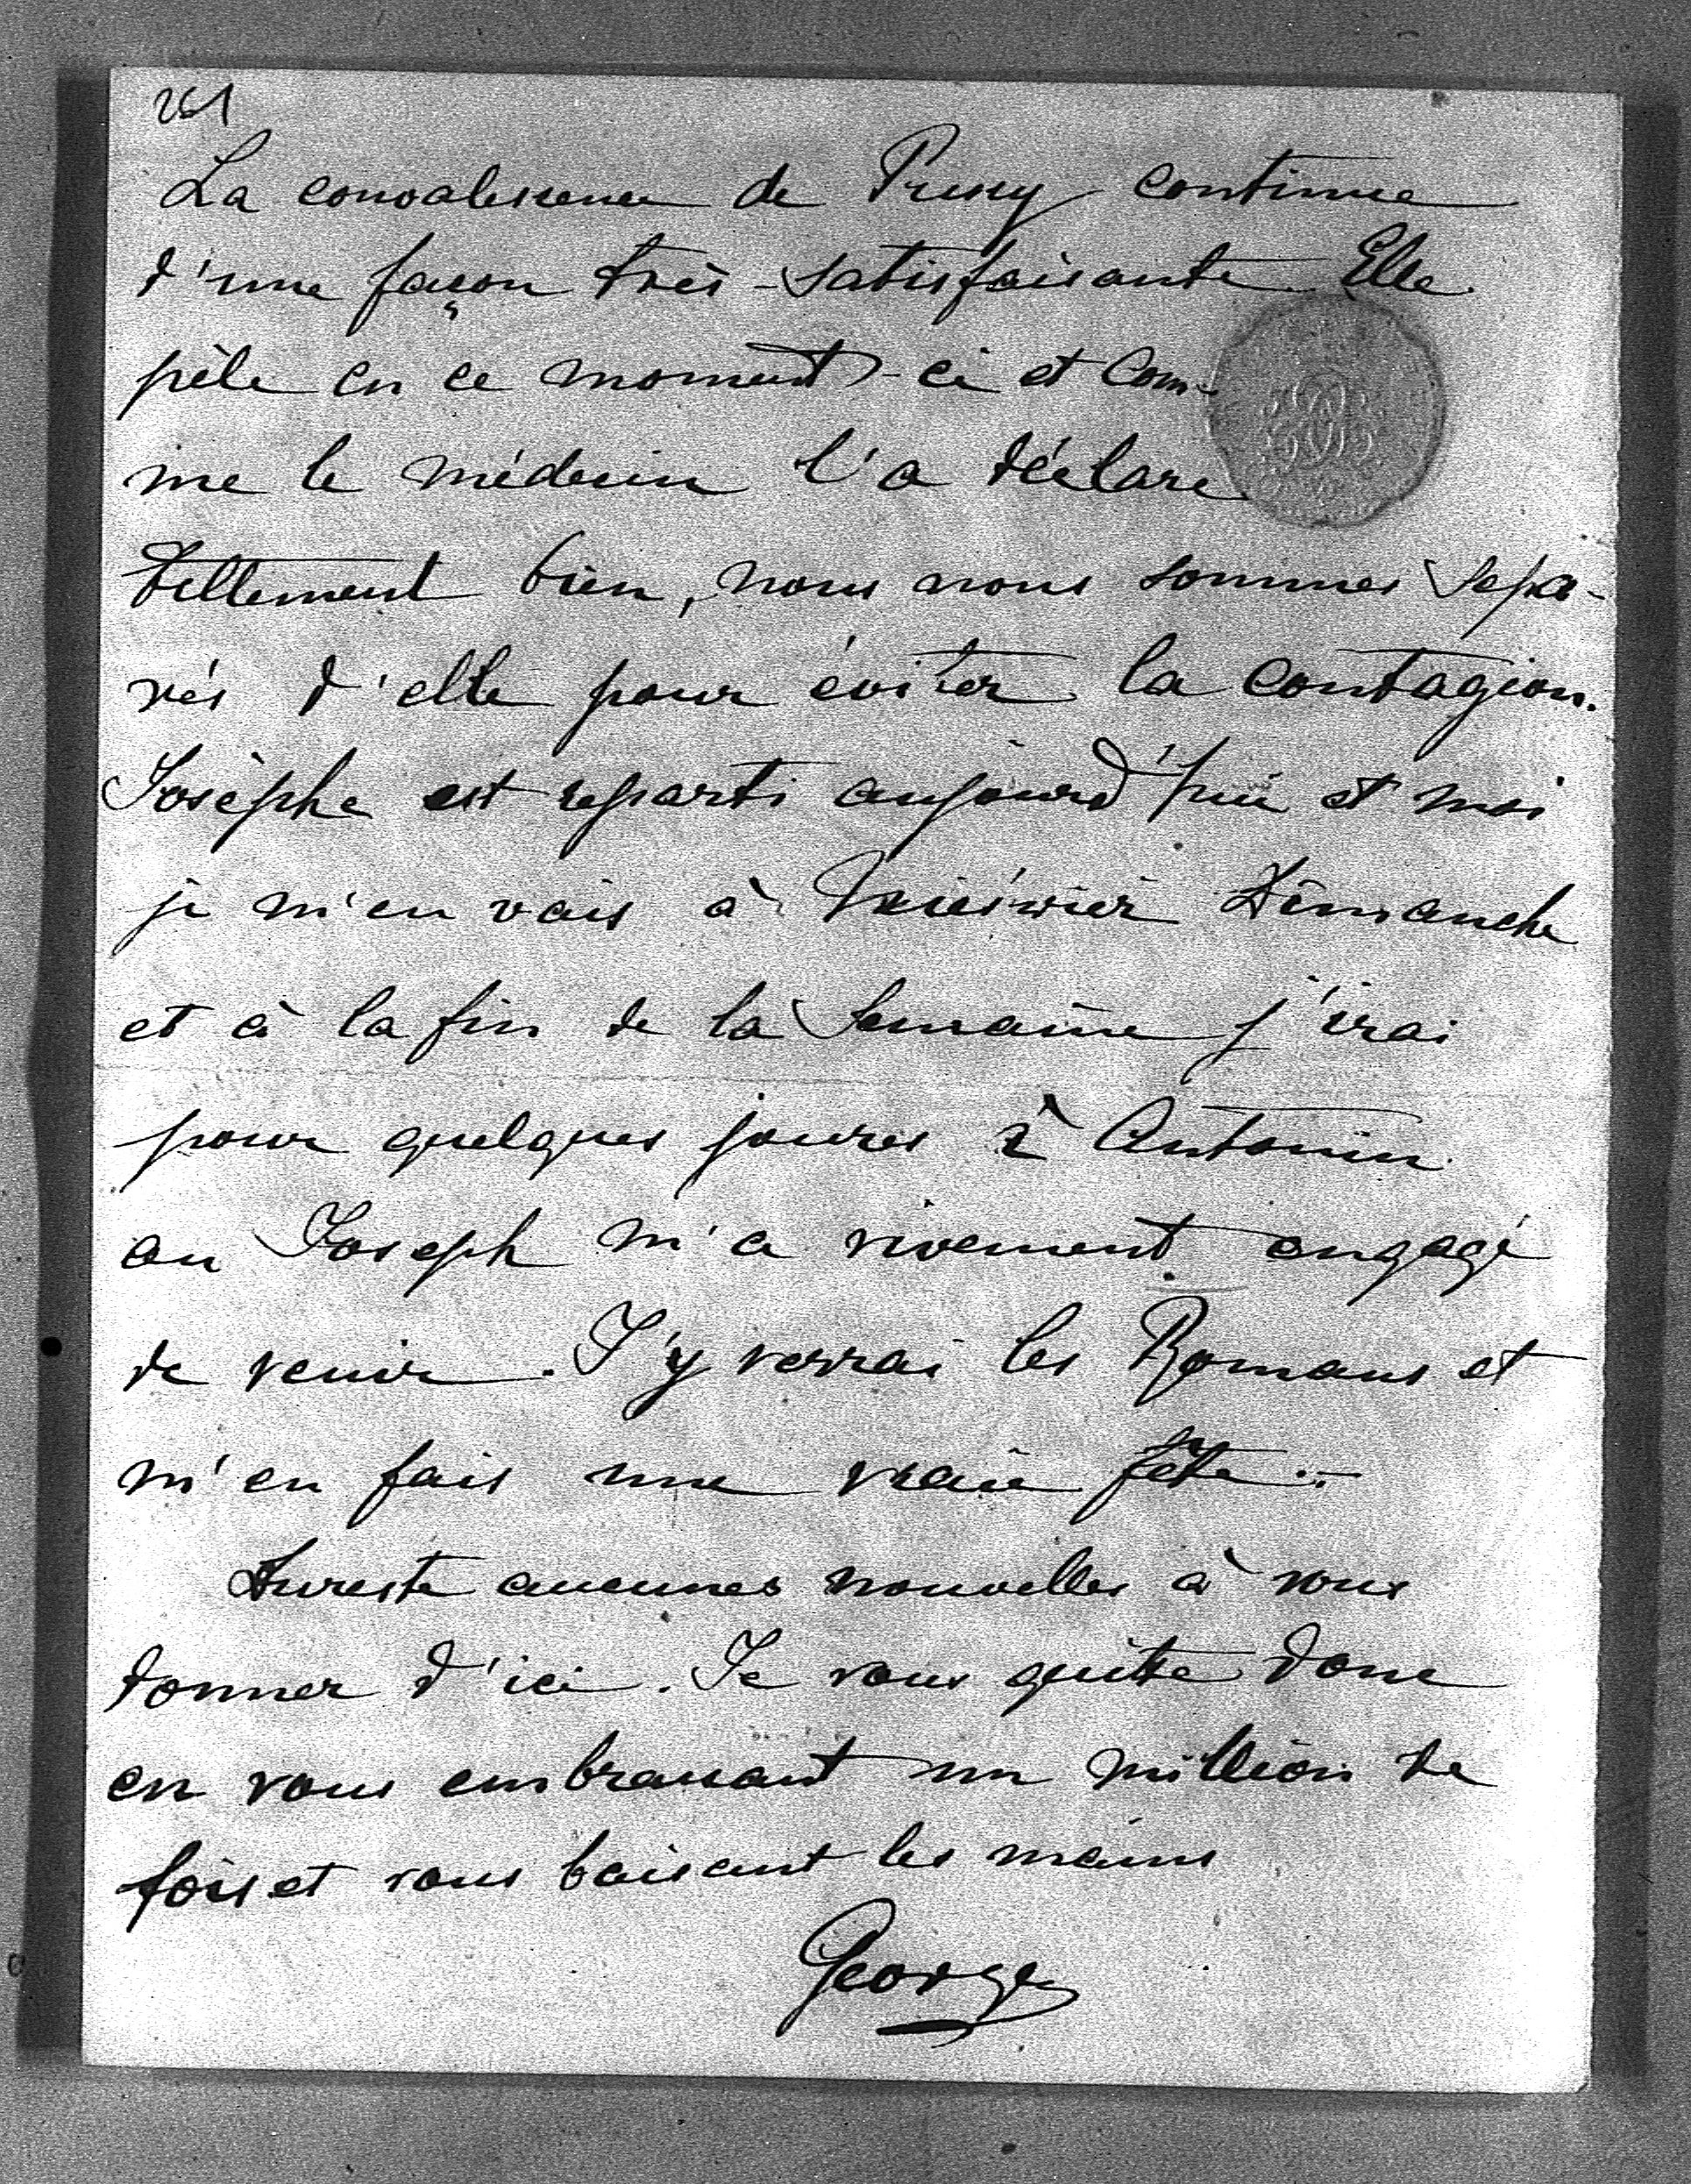 261
La convalescence de Pussy continue
d'une façon très-satisfaisante. Elle
pèle en ce moment-ci et com-
me le médecin l'a déclaré
tellement bien, nous nous sommes sepa-
rés d'elle pour éviter la contagion.
Josèphe est reparti aujourd'hui et moi
je m'en vais à Nieświeź Dimanche
et à la fin de la Semaine j'irai
pour quelques joures à Antonin
ou Joseph m'a vivement engagé
de venir. J'y verrai les Romans et
m'en fais une vraie fête.-
Dureste aucunes nouvelles à vous
donner d'ici. Je vous quitte donc
en vous embrassant un million de
fois et vous baisant les mains
Georges